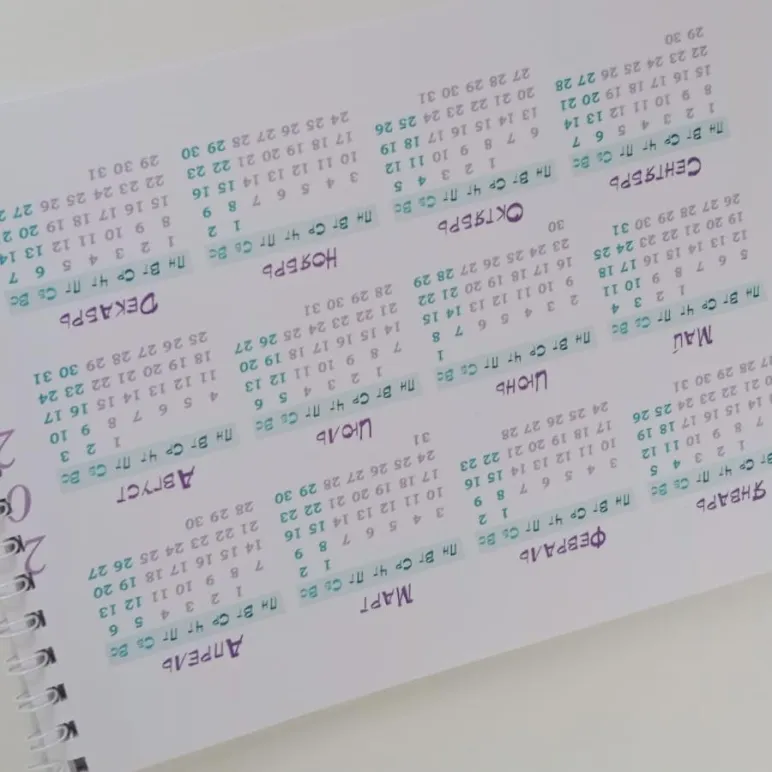 Январь
Ср Чт Пт Сб Вс
1 2 3 4 5
7 8 9 10 11 12
14 15 16 17 18 19
21 22 23 24 25 26
28 29 30 31
Февраль
Пн Вт Ср Чт Пт Сб Вс
1 2
3 4 5 6 7 8 9
10 11 12 13 14 15 16
17 18 19 20 21 22 23
24 25 26 27 28
Март
Пн Вт Ср Чт Пт Сб Вс
1 2
3 4 5 6 7 8 9
10 11 12 13 14 15 16
17 18 19 20 21 22 23
24 25 26 27 28 29 30
31
Апрель
Пн Вт Ср Чт Пт Сб Вс
1 2 3 4 5 6
7 8 9 10 11 12 13
14 15 16 17 18 19 20
21 22 23 24 25 26 27
28 29 30
Май
Пн Вт Ср Чт Пт Сб Вс
1 2 3 4
5 6 7 8 9 10 11
12 13 14 15 16 17 18
19 20 21 22 23 24 25
26 27 28 29 30 31
Июнь
Пн Вт Ср Чт Пт Сб Вс
1
2 3 4 5 6 7 8
9 10 11 12 13 14 15
16 17 18 19 20 21 22
23 24 25 26 27 28 29
30
Июль
Пн Вт Ср Чт Пт Сб Вс
1 2 3 4 5 6
7 8 9 10 11 12 13
14 15 16 17 18 19 20
21 22 23 24 25 26 27
28 29 30 31
Август
Пн Вт Ср Чт Пт Сб Вс
1 2 3
4 5 6 7 8 9 10
11 12 13 14 15 16 17
18 19 20 21 22 23 24
25 26 27 28 29 30 31
Сентябрь
Пн Вт Ср Чт Пт Сб Вс
1 2 3 4 5 6 7
8 9 10 11 12 13 14
15 16 17 18 19 20 21
22 23 24 25 26 27 28
29 30
Октябрь
Пн Вт Ср Чт Пт Сб Вс
1 2 3 4 5
6 7 8 9 10 11 12
13 14 15 16 17 18 19
20 21 22 23 24 25 26
27 28 29 30 31
Ноябрь
Пн Вт Ср Чт Пт Сб Вс
1 2
3 4 5 6 7 8 9
10 11 12 13 14 15 16
17 18 19 20 21 22 23
24 25 26 27 28 29 30
Декабрь
Пн Вт Ср Чт Пт Сб Вс
1 2 3 4 5 6 7
8 9 10 11 12 13 14
15 16 17 18 19 20
22 23 24 25 26 27
29 30 31
2
0
2